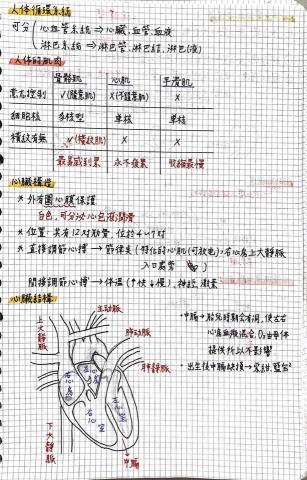 人体循環系統
可分 心血管系統 ⇒ 心臟、血管、血液
淋巴系統 ⇒ 淋巴管、淋巴結、淋巴(液)
人体的肌肉
骨骼肌 心肌 平滑肌
意志控制 ✓(隨意肌) ×(不隨意肌) ×
細胞核 多核型 單核 單核
橫紋有無 ✓(橫紋肌) × ×
最易感到累 永不疲累 收縮最慢
心臟構造
* 外有圍心膜保護
白色,可分泌心包液潤滑
* 位置:共有12对肋骨,位於4~
* 直接調節心搏 → 節律英(特化的心肌(可放電),右心房上大靜脈
入口處旁 )
間接調節心搏 → 体溫(↑快↓慢)、神經、激素
心臟結構
主動脈
肺動脈
肺靜脈
上大靜脈
下大靜脈
右心房
左心房
右心室
左心室
中隔
• 中隔 → 胎兒時期會有洞,使左右
心房血液混合,O₂由母体
提供所以不影響
• 出生後中隔缺損 →